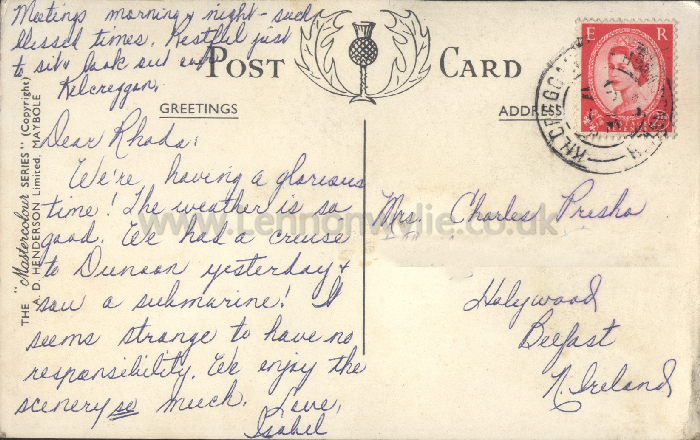 Meetings morning & night - such
blessed times. Restful just
to sit & look out
Kilcreggan.
POST CARD
GREETINGS
ADDRESS
E R
THE "Mastercolour SERIES" (Copyright)
A. D. HENDERSON Limited, MAYBOLE
Dear Rhoda:
We're having a glorious
time! The weather is so
good. We had a cruise
to Dunoon yesterday &
saw a submarine! It
seems strange to have no
responsibility. We enjoy the
scenery so much. Love,
Isabel
Mrs. Charles Presho
Holywood
Belfast
N. Ireland
www.Lennonwylie.co.uk